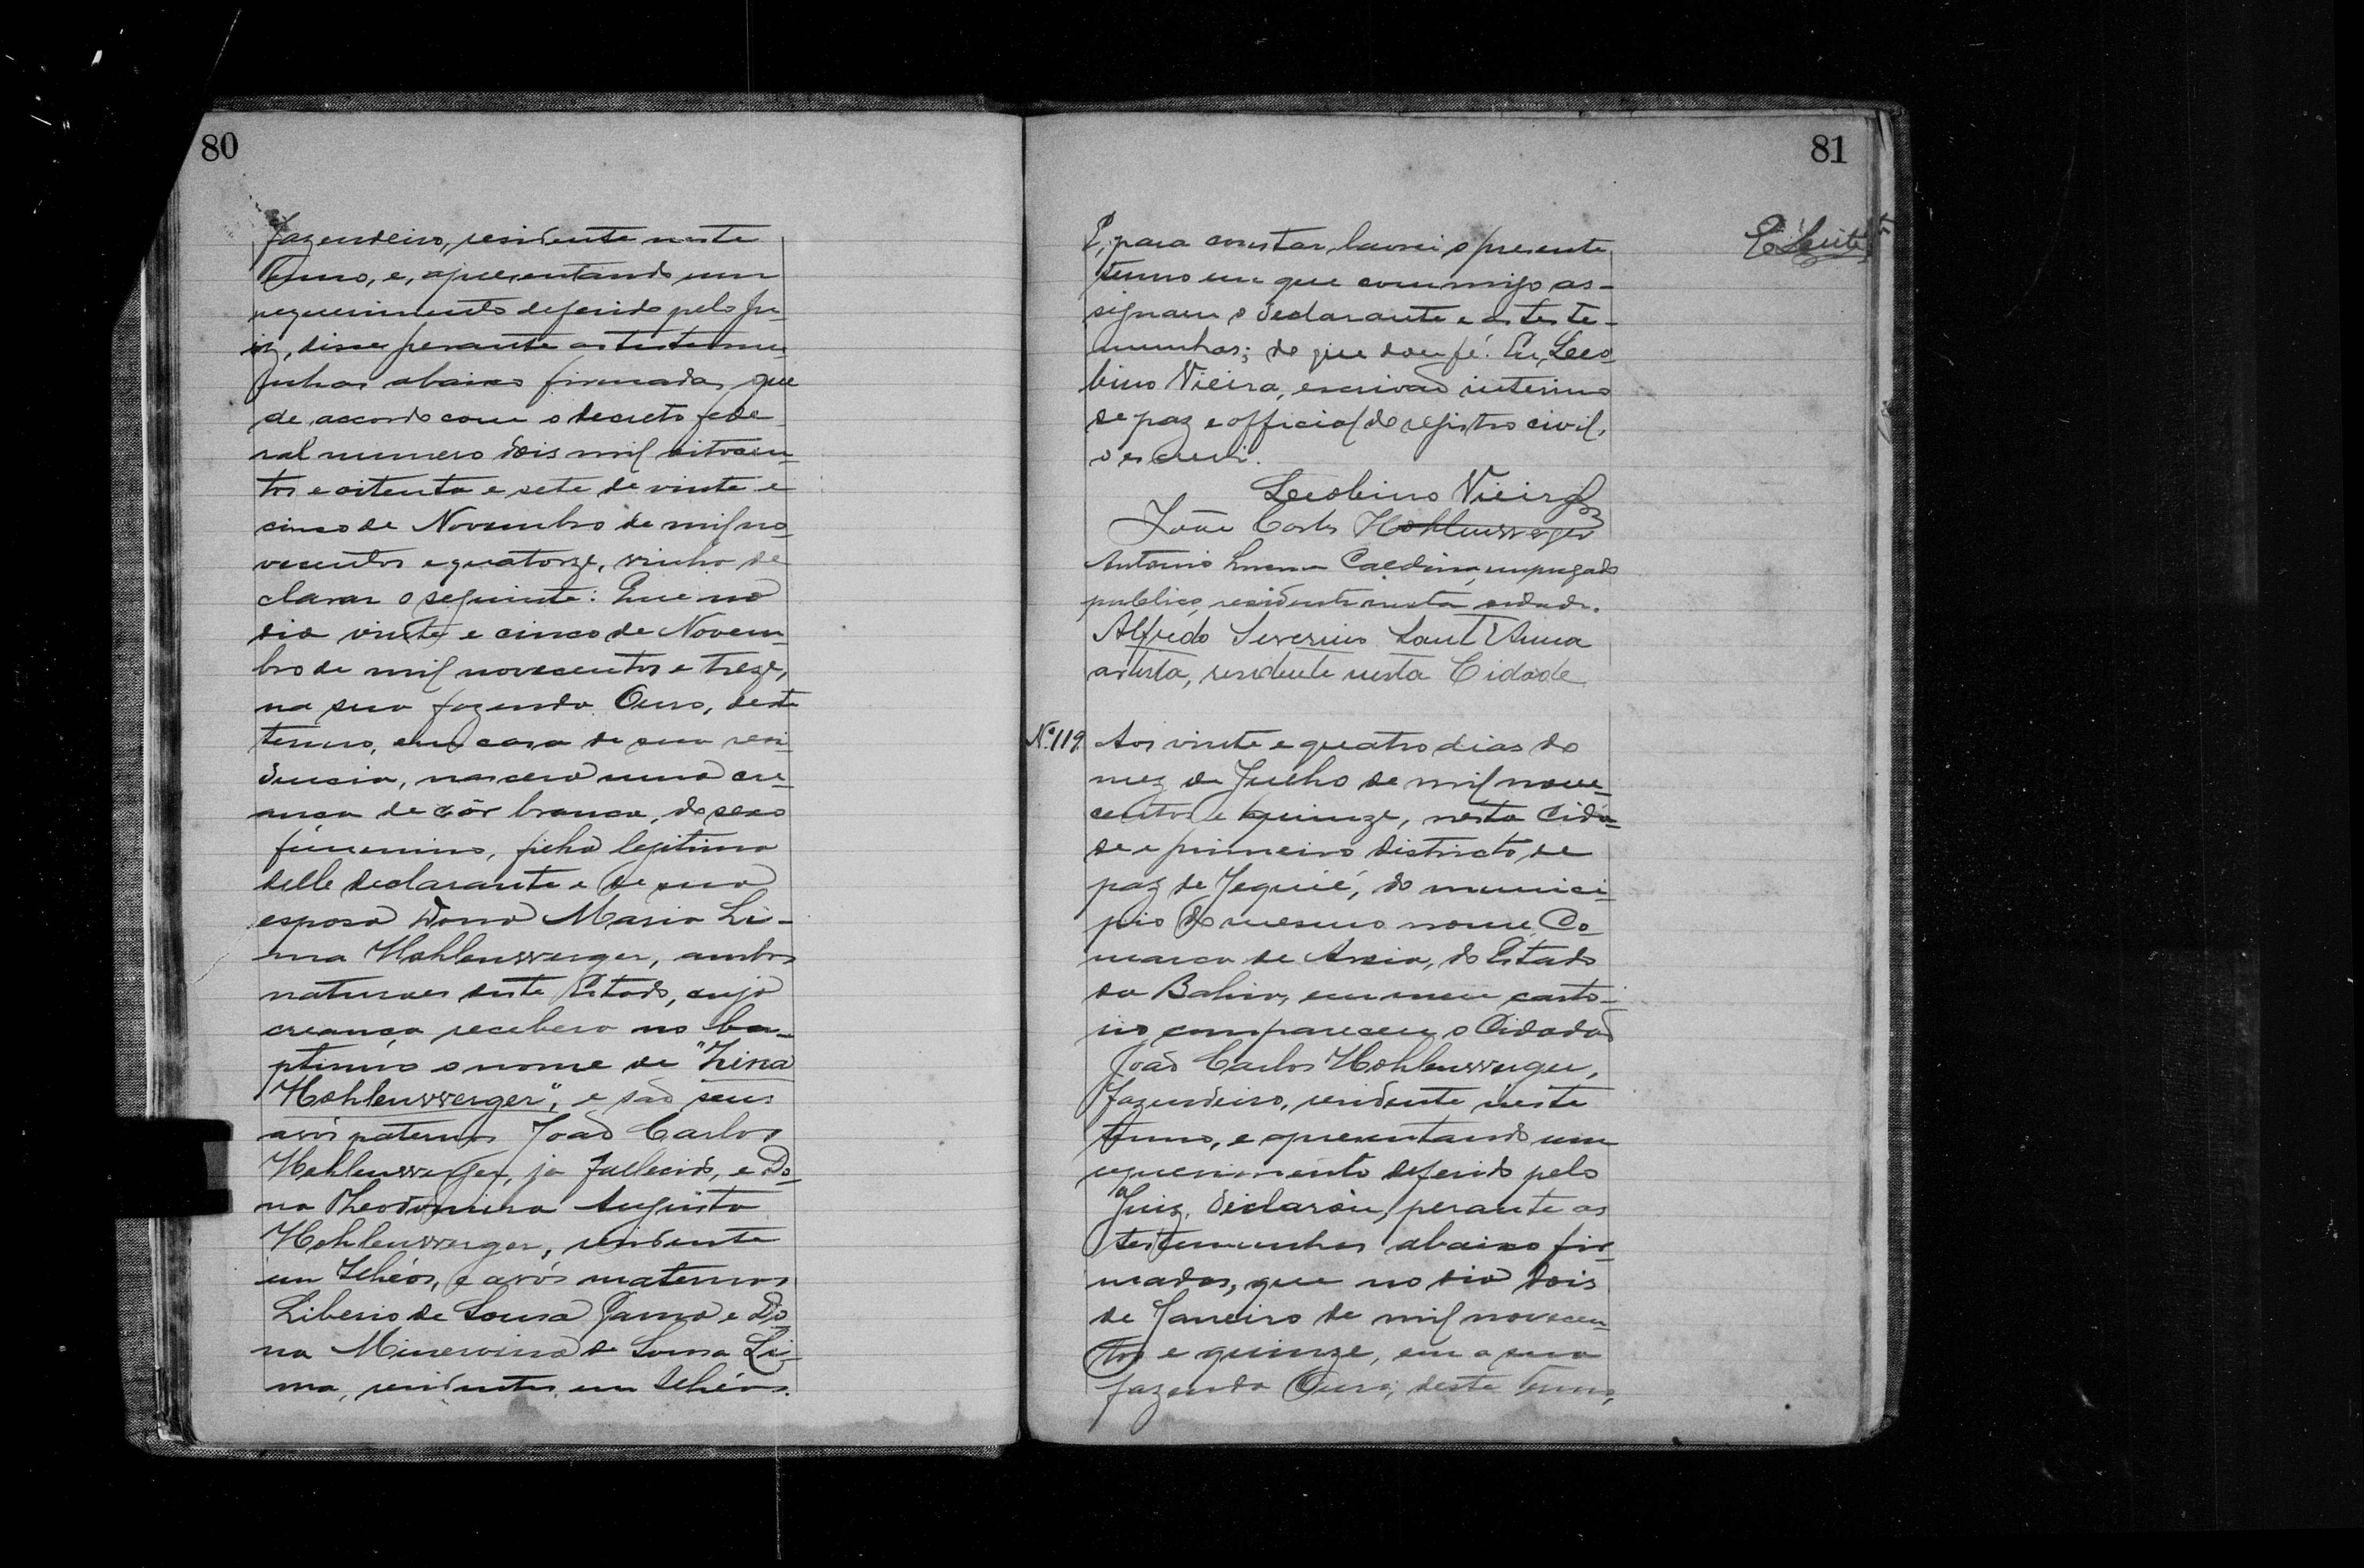 80
fazendeiro, residente neste
Termo, e, apresentando um
requerimento deferido pelo Ju-
iz, disse perante as testemu-
nhas abaixo firmadas, que
de accordo com o decreto fede-
ral numero dois mil oitocen-
tos e oitenta e sete de vinte e
cinco de Novembro de mil no-
vecentos e quatorze, vinha de
clarar o seguinte: Que no
dia vinte e cinco de Novem-
bro de mil novecentos e treze,
na sua fazenda Ouro, deste
termo, em casa de sua resi-
dencia, nascera uma cre-
ança de côr branca, do sexo
feminino, filha legitima
delle declarante e de sua
esposa Dona Maria Li-
ma Hohlenwerger, ambos
naturaes deste Estado, cuja
creança recebera no ba-
ptismo o nome de "Zina
Hohlenwerger", e são seus
avós paternos João Carlos
Hohlenwerger, ja fallecido, e Do-
na Theodomira Augusta
Hohlenwerger, residente
em Ilhéos, e avós maternos
Liberio de Sousa Gama e Do-
na Minervina de Sousa Li-
ma, residentes em Ilhéos.
81
E, para constar, lavrei o presente
termo em que commigo as-
signam o declarante e as teste-
munhas; do que dou fé. Eu, Leo-
bino Vieira, escrivão interino
de paz e official do registro civil,
o escrevi.
Leobino Vieira
João Carlos Hohlenwerger
Antonio empregado
publico, residente nesta cidade.
Alfredo Severino Sant'Anna
artista, residente nesta Cidade
Nº 119. Aos vinte e quatro dias do
mez de Julho de mil nove-
centos e quinze, nesta Cida-
de e primeiro districto de
paz de Jequié, do munici-
pio do mesmo nome, Co-
marca de Areia, do Estado
da Bahia, em meu carto-
rio compareceu o Cidadão
João Carlos Hohlenwerger,
fazendeiro, residente neste
termo, e apresentando um
requerimento deferido pelo
Juiz, declarou, perante as
testemunhas abaixo fir-
madas, que no dia dois
de Janeiro de mil novecen-
tos e quinze, em a sua
fazenda Ouro, deste termo,